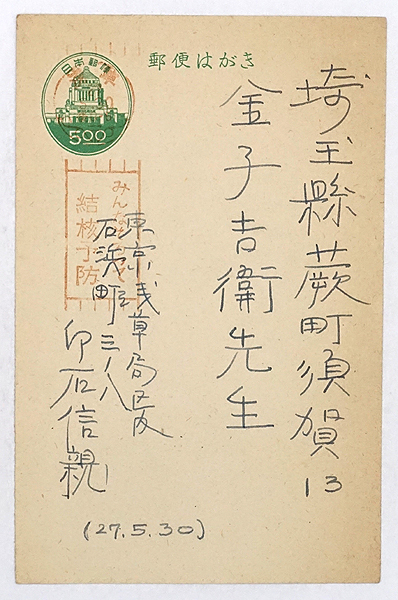 郵便はがき
日本郵便
5.00
埼玉縣蕨町須賀13
金子吉衛先生
みんな
結核予防
東京浅草局区内
石浜町三ノ八
印石信親
(27.5.30)